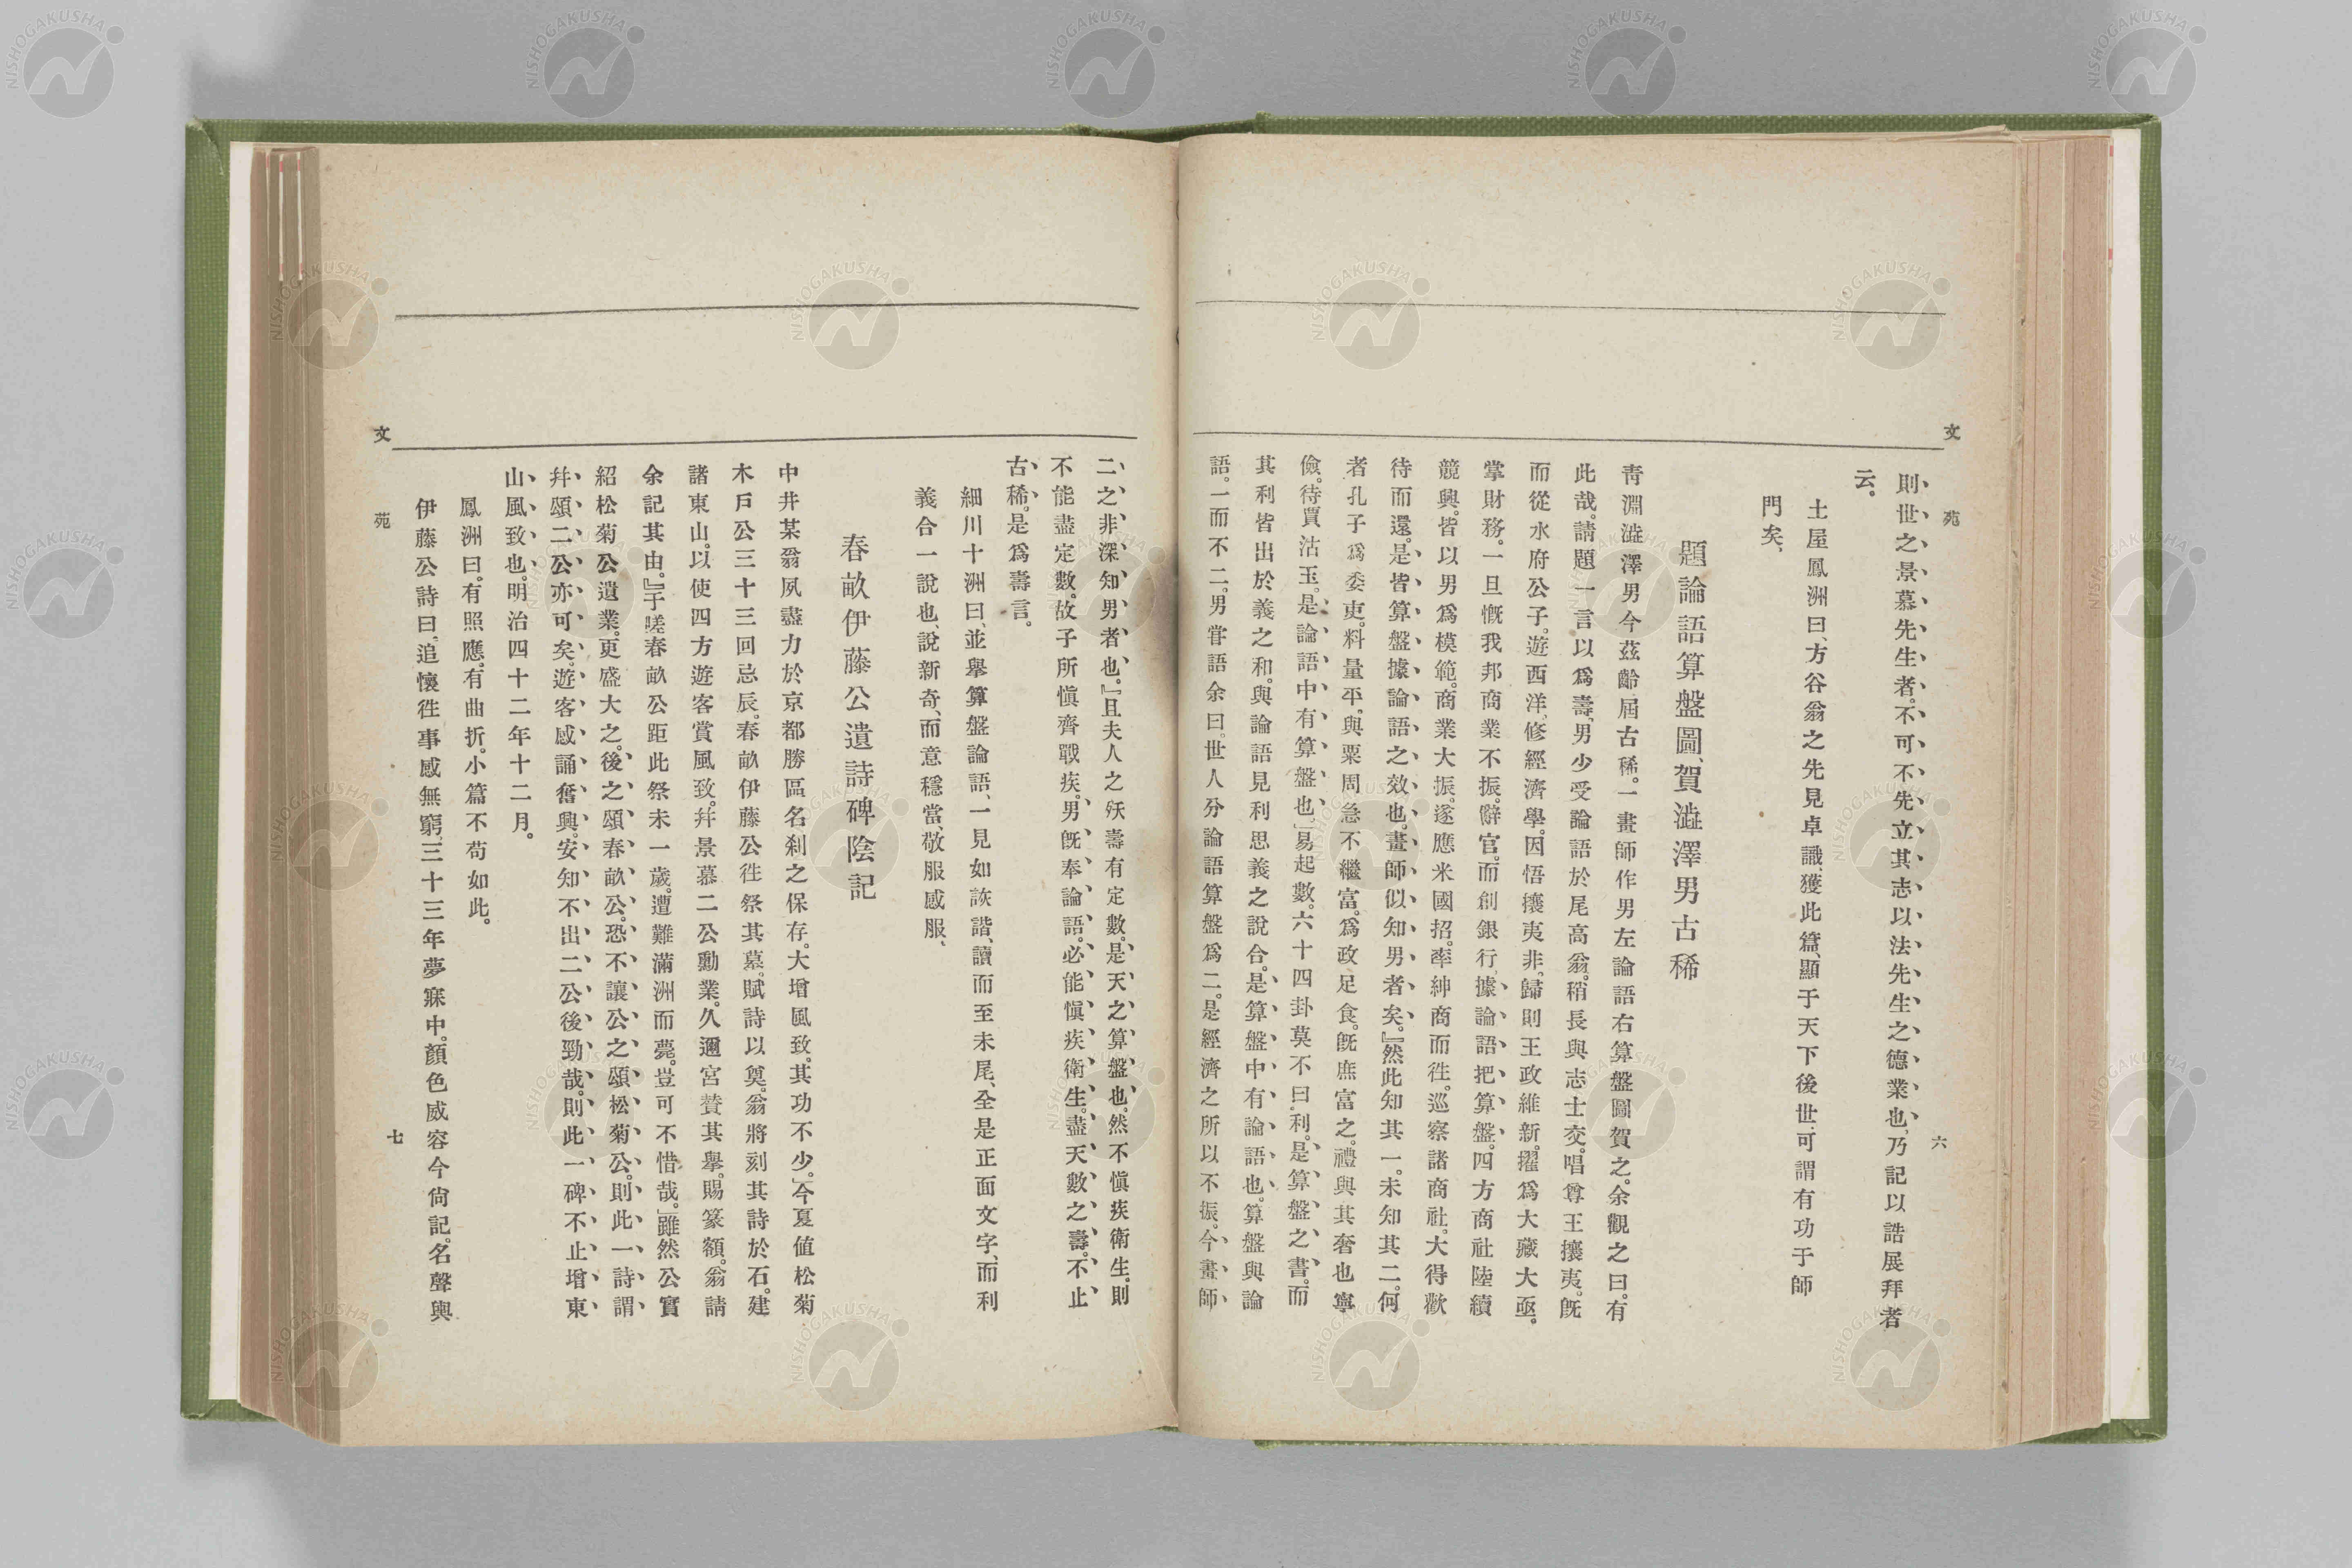 文苑
六
則世之景慕先生者。不可不先立其志以法先生之德業也、乃記以誥展拜者
云。
土屋鳳洲曰、方谷翁之先見卓識、獲此篇、顯于天下後世、可謂有功于師
門矣、
題論語算盤圖、賀澁澤男古稀
靑淵澁澤男今茲齡屆古稀。一畫師作男左論語右算盤圖賀之。余觀之曰。有
此哉。請題一言以爲壽。男少受論語於尾高翁。稍長與志士交。唱尊王攘夷。旣
而從水府公子。遊西洋、修經濟學。因悟攘夷非。歸則王政維新。擢爲大藏大亟。
掌財務。一旦慨我邦商業不振。辭官。而創銀行、據論語把算盤。四方商社陸續
競興。皆以男爲模範。商業大振。遂應米國招。率紳商而徃。巡察諸商社。大得歡
待而還。是皆算盤據論語之效也。畫師似知男者矣。』然此知其一。未知其二。何
者孔子爲委吏。料量平。與粟周急不繼富。爲政足食。旣庶富之。禮與其奢也寧
儉。待賈沽玉。是論語中有算盤也、」易起數。六十四卦莫不曰。利。是算盤之書。而
其利皆出於義之和。與論語見利思義之說合。是算盤中有論語也。算盤與論
語。一而不二。男甞語余曰。世人分論語算盤爲二。是經濟之所以不振。今畫師
二之非深知男者也。』且夫人之殀壽有定數。是天之算盤也。然不愼疾衛生。則
不能盡定數。故子所愼齊戰疾。男旣奉論語。必能愼疾衛生。盡天數之壽。不止
古稀。是爲壽言。
細川十洲曰、並擧算盤論語、一見如詼諧、讀而至未尾、全是正面文字、而利
義合一說也、說新奇、而意穩當、敬服感服、
春畝伊藤公遺詩碑陰記
中井某翁夙盡力於京都勝區名刹之保存。大增風致。其功不少。」今夏値松菊
木戶公三十三回忌辰。春畝伊藤公徃祭其墓。賦詩以奠。翁將刻其詩於石。建
諸東山。以使四方遊客賞風致。幷景慕二公勳業。久邇宮贊其擧。賜篆額。翁請
余記其由。』于嗟春畝公距此祭未一歲。遭難滿洲而薨。豈可不惜哉。」雖然公實
紹松菊公遺業。更盛大之。後之頌春畝公。恐不讓公之頌松菊公。則此一詩謂
幷頌二公亦可矣。遊客感誦奮興。安知不出二公後勁哉。則此一碑不止增東
山風致也。明治四十二年十二月。
鳳洲曰。有照應。有曲折。小篇不苟如此。
伊藤公詩曰、追懷徃事感無窮、三十三年夢寐中。顏色威容今尙記。名聲與
文苑
七